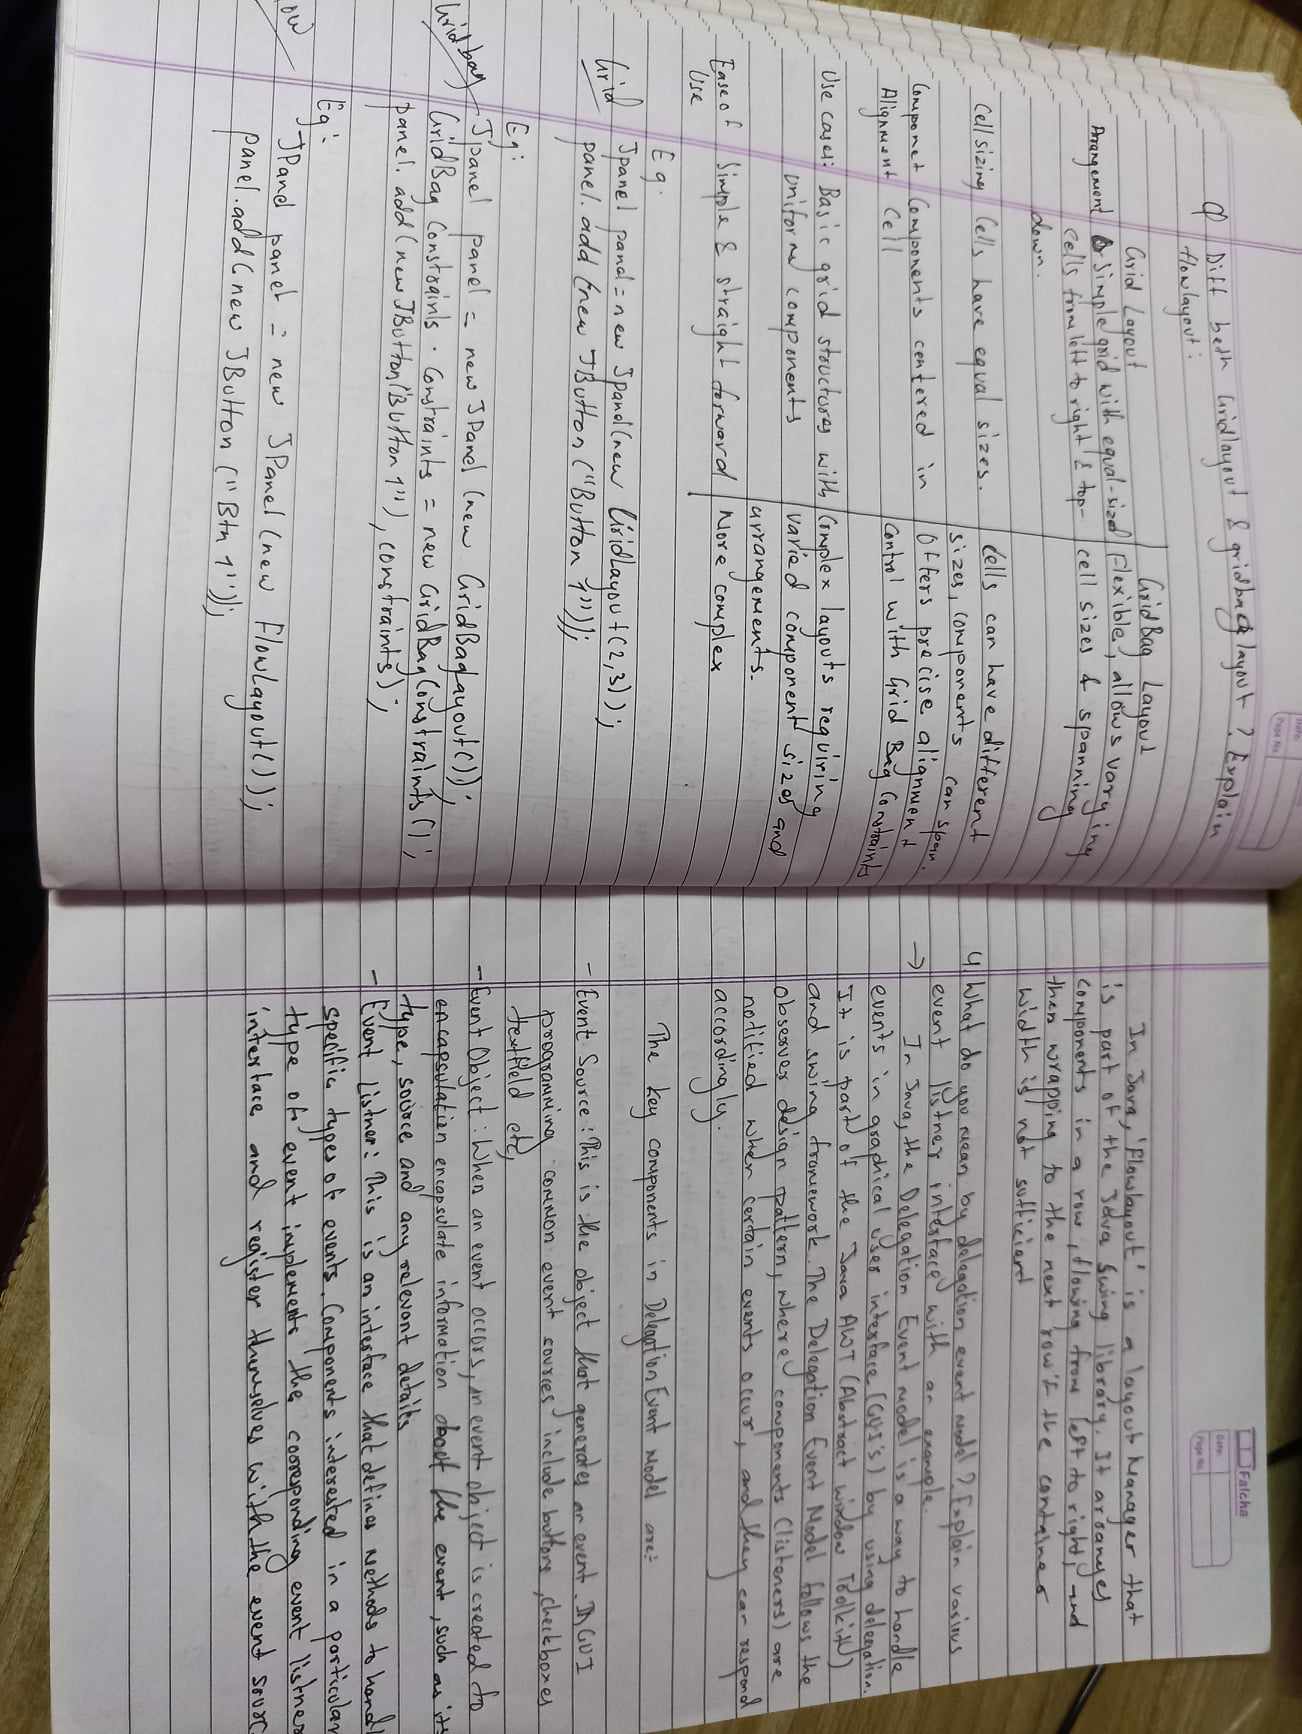 Q Diff betn Gridlayout & gridbag layout ? Explain
flowlayout :
Grid Layout GridBag Layout
Arrangement Simple grid with equal-sized Flexible, allows varying
cells from left to right & top- cell sizes & spanning
down.
Cell sizing Cells have equal sizes. Cells can have different
sizes, components can span.
Componet Components centered in Offers precise alignment
Alignment Cell Control with Grid Bag Constraints
Use cases: Basic grid structures with Complex layouts requiring
uniform components varied component sizes and
arrangements.
Ease of Simple & straight forward More complex
Use
Eg.
Grid Jpanel panel = new Jpanel(new GridLayout(2,3));
panel. add (new JButton ("Button 1"));
Eg:
Gridbag Jpanel panel = new JPanel (new GridBagLayout());
GridBag Constraints. Constraints = new GridBagConstraints();
panel. add (new JButton("Button 1"), constraints);
Eg:
JPanel panel = new JPanel (new FlowLayout());
panel.add (new JButton ("Btn 1"));
Date:
Page No.
Falcha
Date:
Page No.
In Java, 'Flowlayout' is a layout Manager that
is part of the Java Swing library. It arranges
components in a row, flowing from left to right, and
then wrapping to the next row if the container
width is not sufficient
4. What do you mean by delegation event model ? Explain various
event listner interface with an example.
→ In Java, the Delegation Event model is a way to handle
events in graphical user interface (GUI's) by using delegation.
It is part of the Java AWT (Abstract window Toolkit)
and swing framework. The Delegation Event Model follows the
observer design pattern, where components (listeners) are
notified when certain events occur, and they can respond
accordingly.
The key components in Delegation Event Model are:
- Event Source : This is the object that generates an event. In GUI
programming common event sources include buttons, checkboxes
textfield etc,
- Event Object : When an event occurs, an event object is created to
encapsulation encapsulate information about the event, such as its
type, source and any relevant details
- Event Listner : This is an interface that defines methods to handl
specific types of events. Components interested in a particular
type of event implements the corresponding event listner
interface and register themselves with the event sourc